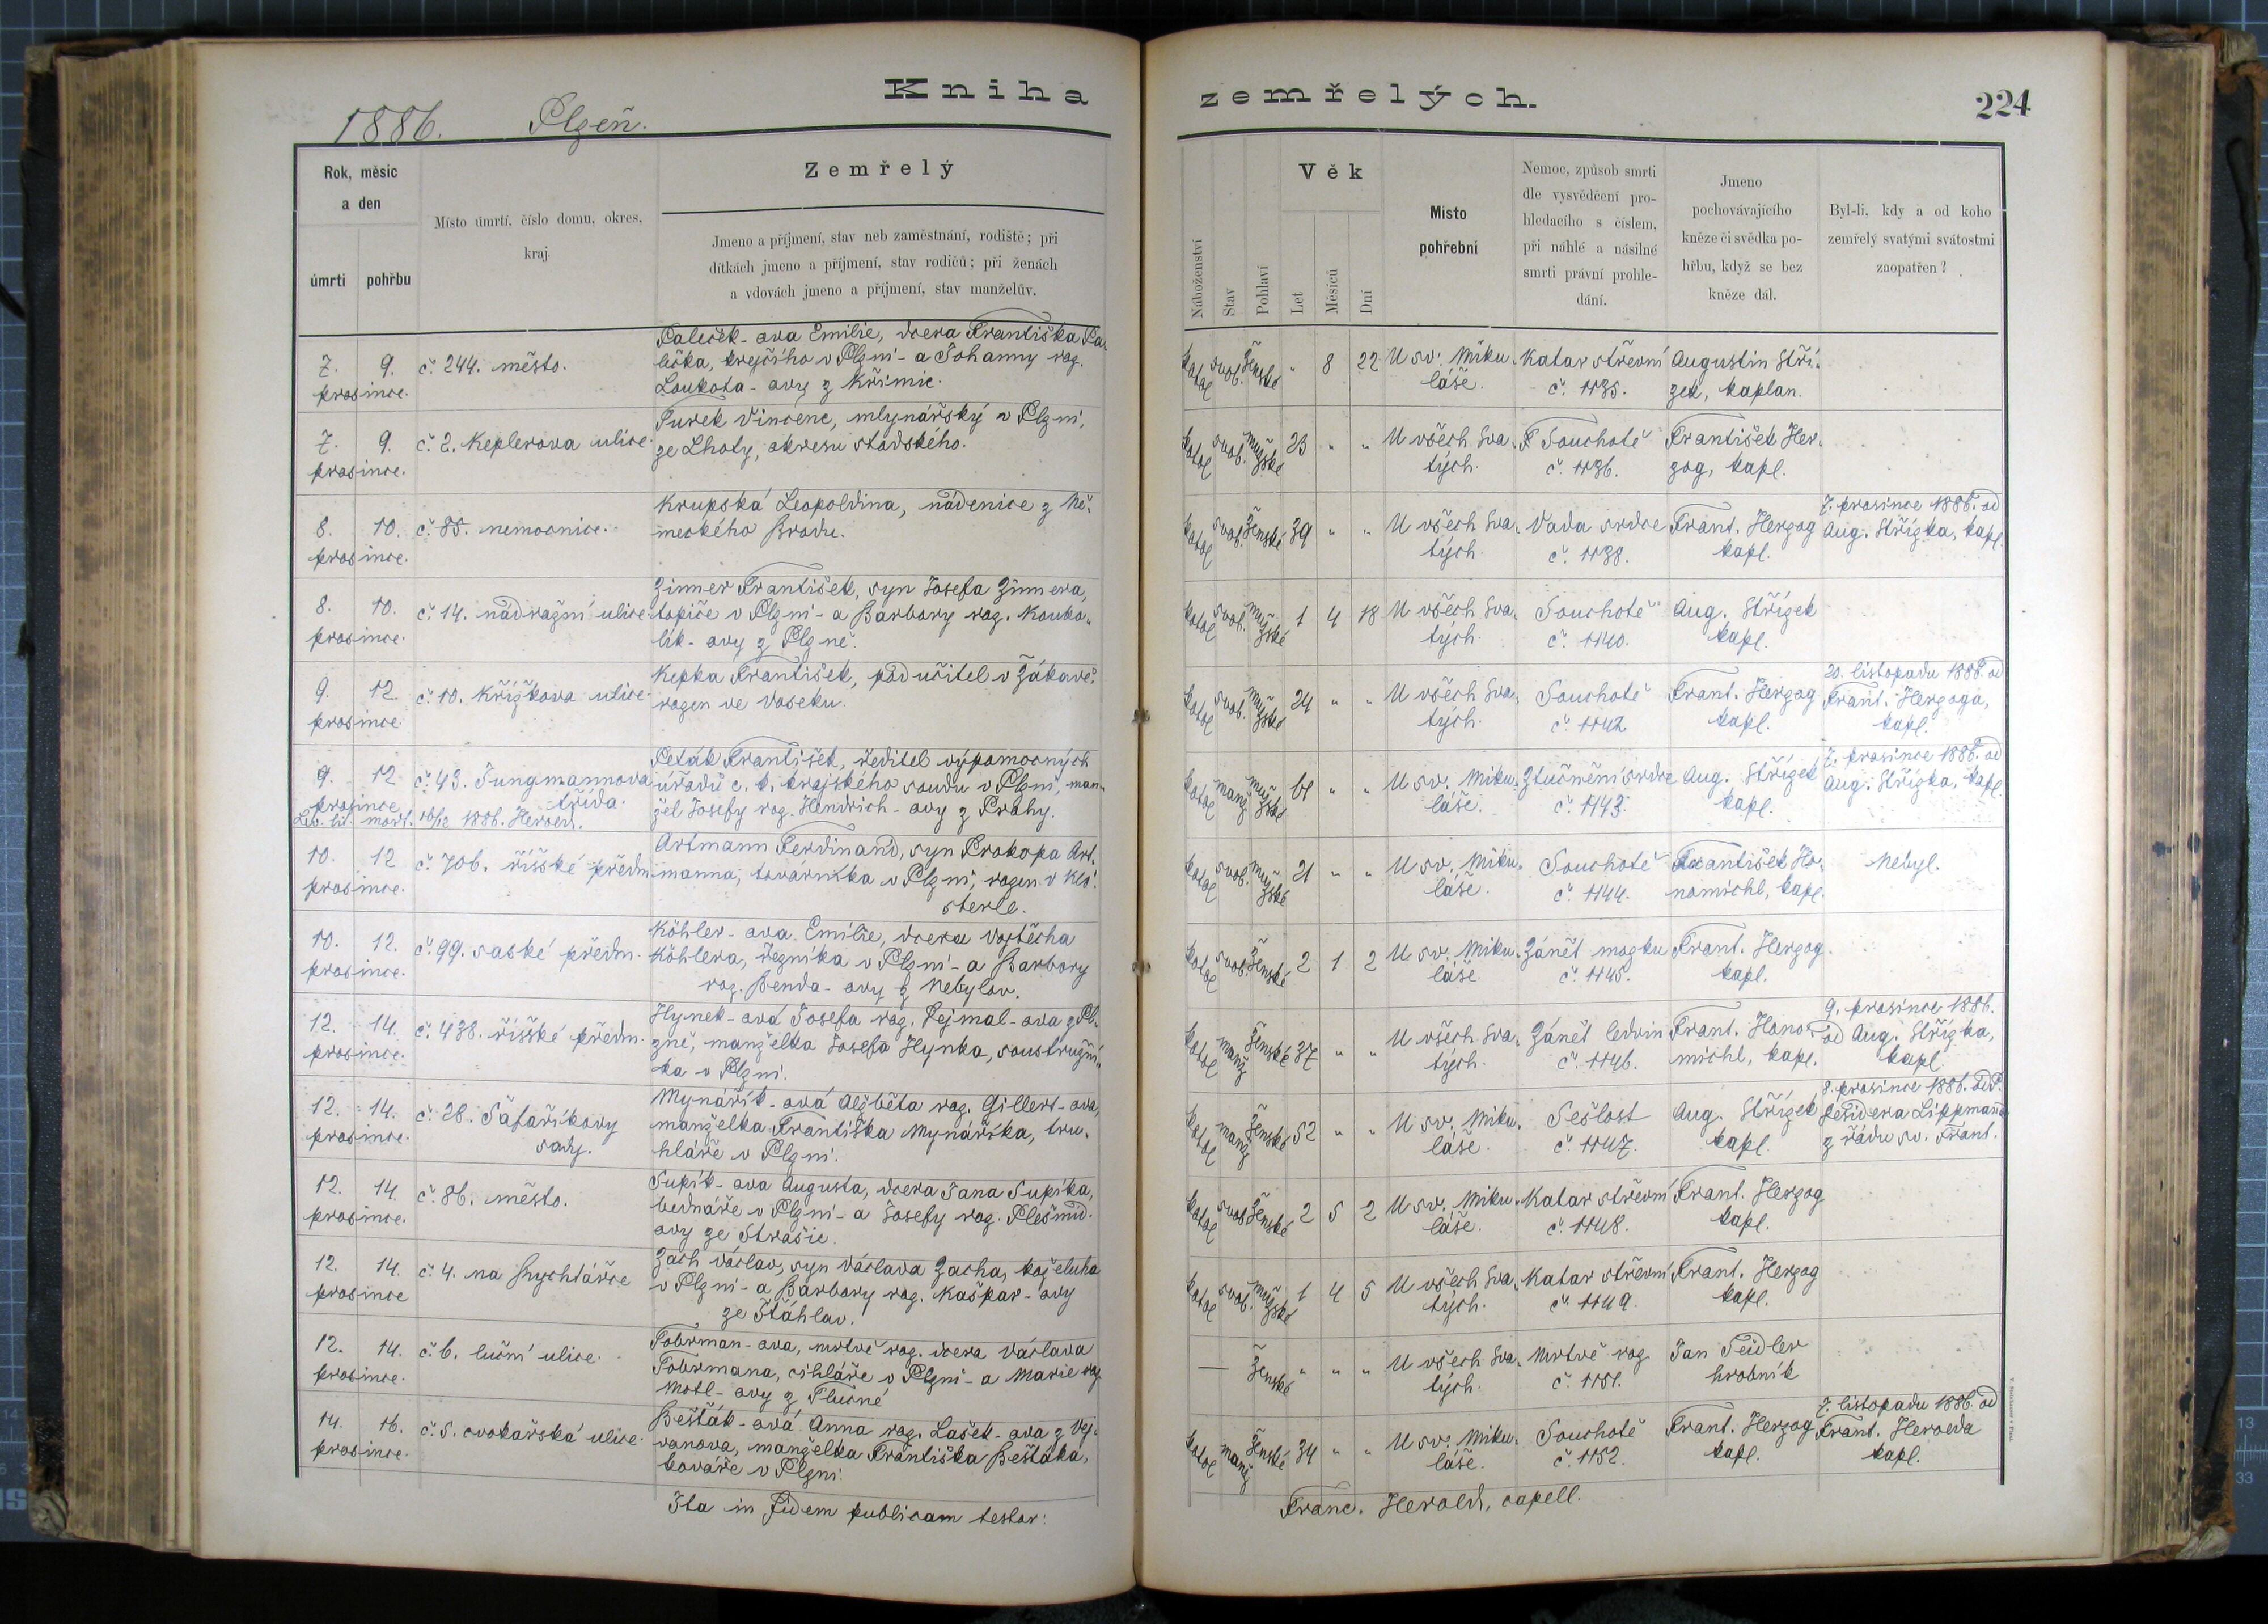 Kniha
zemřelých.
224
1886. Plzeň.
Rok, měsíc
a den
úmrtí
pohřbu
Místo úmrtí, číslo domu, okres,
kraj.
Zemřelý
Jmeno a příjmení, stav neb zaměstnání, rodiště; při
dítkách jmeno a příjmení, stav rodičů; při ženách
a vdovách jmeno a příjmení, stav manželův.
Náboženství
Stav
Pohlaví
Věk
Let
Měsíců
Dní
Místo
pohřební
Nemoc, způsob smrti
dle vysvědčení pro-
hledacího s číslem,
při náhlé a násilné
smrti právní prohle-
dání.
Jmeno
pochovávajícího
kněze či svědka po-
hřbu, když se bez
kněze dál.
Byl-li, kdy a od koho
zemřelý svatými svátostmi
zaopatřen?
7. 9.
prosince.
č. 244. město.
Paleček-ova Emilie, dcera Františka Pa-
lečka, krejčího v Plzni - a Johanny roz.
Loukota-ovy z Křimic.
katol svob. Ženské " 8 22
U sv. Miku-
láše.
Katar střevní
č. 1135.
Augustin Stří-
zek, kaplan.
7. 9.
prosince.
č. 2. Keplerova ulice.
Turek Vincenc, mlynářský v Plzni,
ze Lhoty, okresu stodského.
katol svob. mužské 23 " "
U všech Sva-
tých.
Souchotě
č. 1136.
František Her-
zog, kapl.
8. 10.
prosince.
č. 85. nemocnice.
Krupská Leopoldina, nádenice z Ně-
meckého Brodu.
katol svob. Ženské 39 " "
U všech Sva-
tých.
Vada srdce
č. 1138.
Frant. Herzog
kapl.
7. prosince 1886. od
Aug. Střízka, kapl.
8. 10.
prosince.
č. 14. nádražní ulice.
Zinner František, syn Josefa Zinnera,
topiče v Plzni - a Barbory roz. Koubo-
lík-ovy z Plzně.
katol svob. mužské 1 4 18
U všech Sva-
tých.
Souchotě
č. 1140.
Aug. Střízek
kapl.
9. 12
prosince.
č. 10. Křížkova ulice.
Kepka František, podučitel v Žákavě,
rozen ve Voseku.
katol svob. mužské 24 " "
U všech Sva-
tých.
Souchotě
č. 1142
Frant. Herzog
kapl.
20. listopadu 1886. od
Frant. Herzoga,
kapl.
9. 12
prosince
č. 43. Jungmannova
třída.
Lev. lit. mort. 16/12 1886. Herold.
Peták František, ředitel výpomocných
úřadů c. k. krajského soudu v Plzni, man-
žel Josefy roz. Hendrich-ovy z Prahy.
katol manž mužské 61 " "
U sv. Miku-
láše.
Ztučnění srdce
č. 1143.
Aug. Střízek
kapl.
7. prosince 1886. od
Aug. Střízka, kapl.
10. 12
prosince.
č. 706. říšské předm.
Artmann Ferdinand, syn Prokopa Art-
manna, továrníka v Plzni, rozen v Klö-
sterle.
katol svob. mužské 21 " "
U sv. Miku-
láše.
Souchotě
č. 1144.
František Ho-
nomichl, kapl.
Nebyl.
10. 12.
prosince.
č. 99. saské předm.
Köhler-ova Emilie, dcera Vojtěcha
Köhlera, řezníka v Plzni - a Barbory
roz. Benda-ovy z Nebylov.
katol svob. Ženské 2 1 2
U sv. Miku-
láše
Zánět mozku
č. 1145.
Frant. Herzog.
kapl.
12. 14.
prosince.
č. 438. říšské předm.
Hynek-ová Josefa roz. Rejmal-ova z Pl-
zně, manželka Josefa Hynka, soustružní-
ka v Plzni.
katol manž Ženské 37 " "
U všech Sva-
tých.
Zánět ledvin
č. 1146.
Frant. Hono-
michl, kapl.
9. prosince 1886.
od Aug. Střízka,
kapl.
12. 14.
prosince.
č. 28. Šafaříkovy
sady.
Mynářík-ová Alžběta roz. Gillert-ova,
manželka Františka Mynáříka, tru-
hláře v Plzni.
katol manž Ženské 52 " "
U sv. Miku-
láše.
Sešlost
č. 1147.
Aug. Střízek
kapl.
8. prosince 1886. od P.
Desidera Lippmanna
z řádu sv. Frant.
12. 14.
prosince.
č. 86. město.
Supík-ova Augusta, dcera Jana Supíka,
bednáře v Plzni - a Josefy roz. Plešmíd-
ovy ze Strašic.
katol svob. Ženské 2 5 2
U sv. Miku-
láše.
Katar střevní
č. 1148.
Frant. Herzog
kapl.
12. 14.
prosince
č. 4. na Rychtářce
Zach Václav, syn Václava Zacha, koželuha
v Plzni - a Barbory roz. Kašpar-ovy
ze Štáhlav.
katol svob. mužské 1 4 5
U všech Sva-
tých.
Katar střevní
č. 1149.
Frant. Herzog
kapl.
12. 14.
prosince.
č. 6. luční ulice.
Fobrman-ova, mrtvě roz. dcera Václava
Fobrmana, cihláře v Plzni - a Marie roz.
Motl-ovy z Tlučné
— Ženské " " "
U všech Sva-
tých.
Mrtvě roz
č. 1151.
Jan Seidler
hrobník
14. 16.
prosince.
č. 5. cvokařská ulice.
Bešťák-ová Anna roz. Lašek-ova z Vej-
vanova, manželka Františka Bešťáka,
kováře v Plzni.
katol manž Ženské 34 " "
U sv. Miku-
láše.
Souchotě
č. 1152.
Frant. Herzog
kapl.
7. listopadu 1886. od
Frant. Herolda
kapl.
Ita in fidem publicam testor:
Franc. Herold, capell.